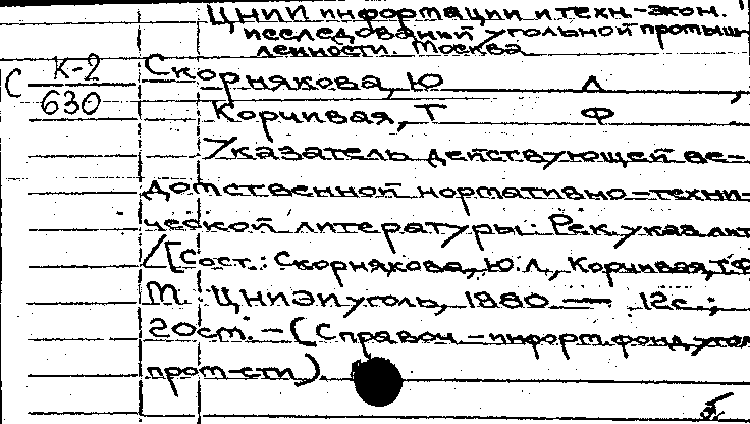 ЦНИИ информации и техн.-экон.
исследований угольной промыш-
ленности. Москва
С К-2 Скорнякова, Ю Л ,
630 Корчивая, Т Ф
Указатель действующей ве-
домственной нормативно-техни-
ческой литературы: Рек. указ. лит
/[Сост.: Скорнякова, Ю.Л., Корчивая, Т.Ф
М.: ЦНИЭИуголь, 1980. — 12с.;
20см. – (Справоч.-информ. фонд угол
пром-сти)